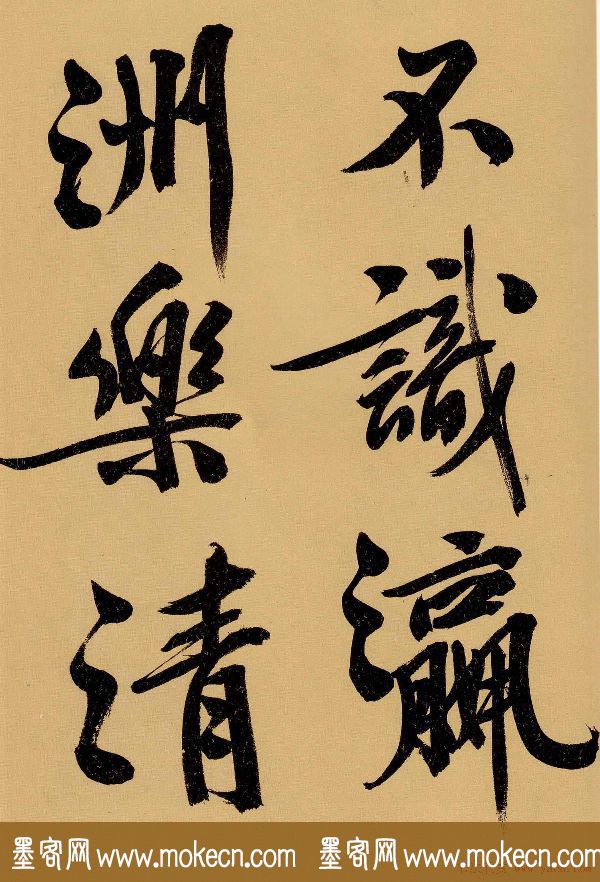 不識瀛
洲樂清
墨客网 www.mokecn.com 墨客网 www.mokecn.com